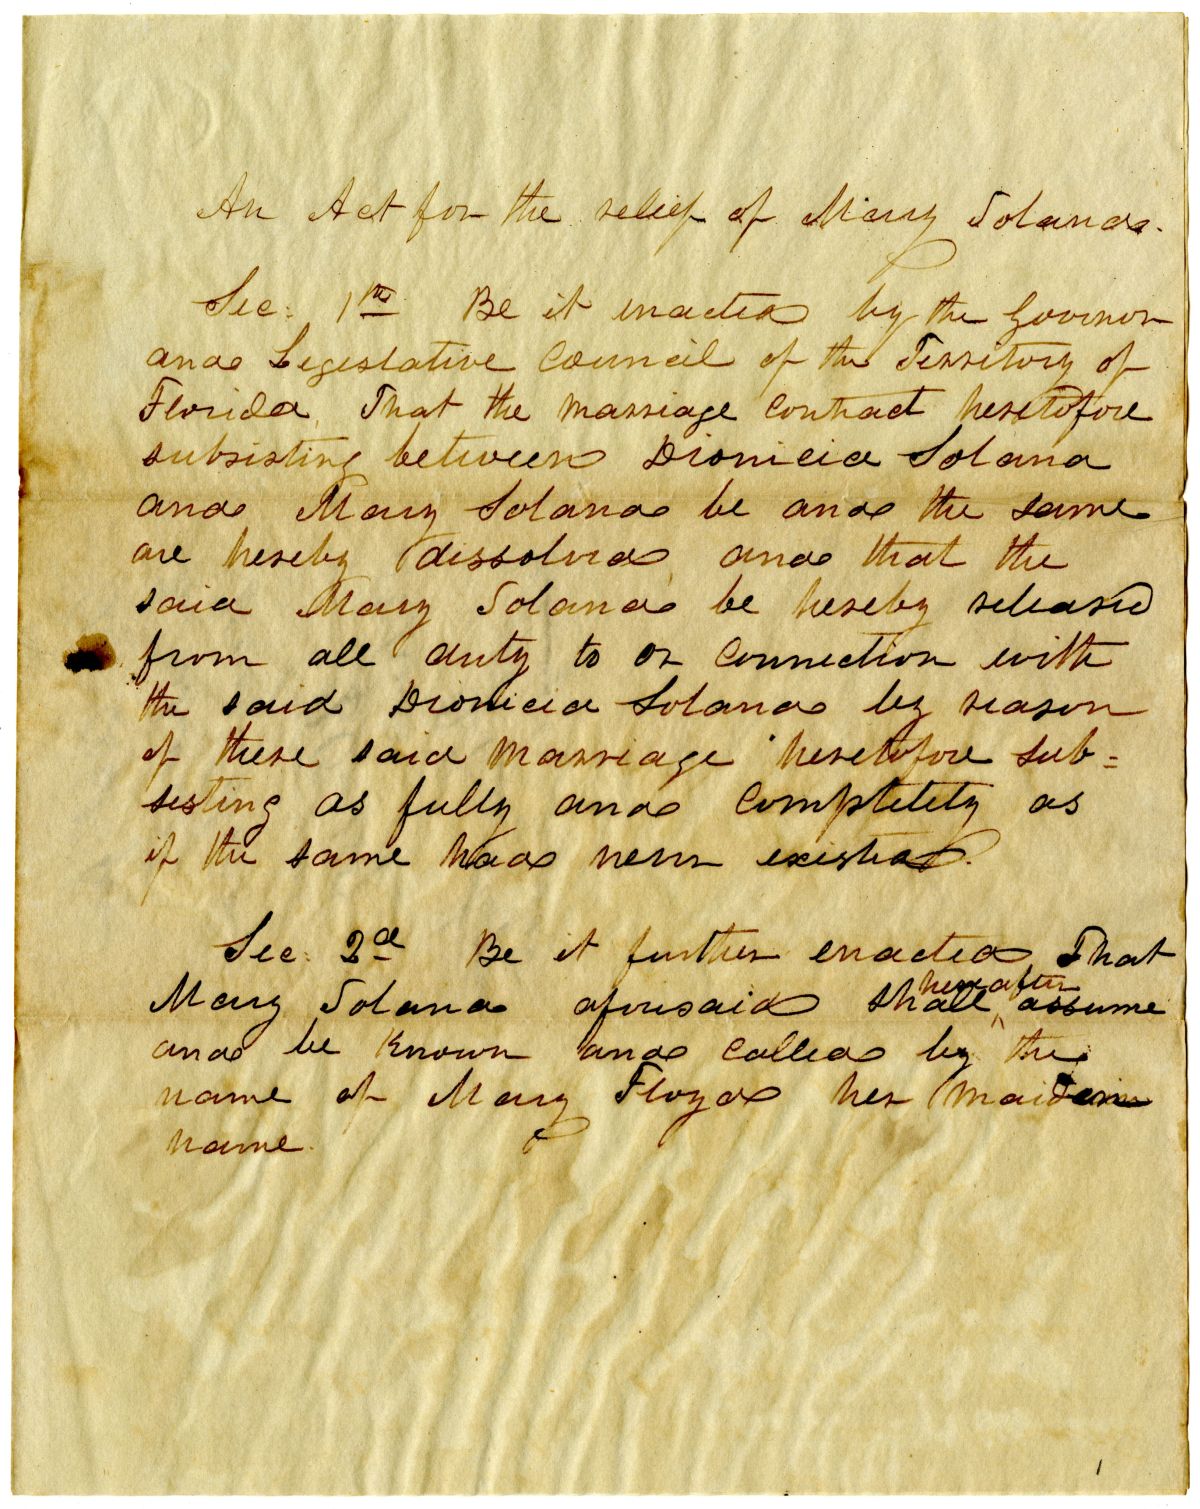 An Act for the relief of Mary Solana.
Sec. 1st Be it enacted by the Governor
and Legislative Council of the Territory of
Florida, That the marriage contract heretofore
subsisting between Dionicia Solana
and Mary Solana be and the same
are hereby dissolved, and that the
said Mary Solana be hereby released
from all duty to or connection with
the said Dionicia Solana by reason
of there said marriage heretofore sub=
sisting as fully and completely as
if the same had never existed.
Sec. 2d Be it further enacted, That
hereafter
Mary Solana aforesaid shall ^ assume
and be known and called by the
name of Mary Floyd her maiden
name.
1